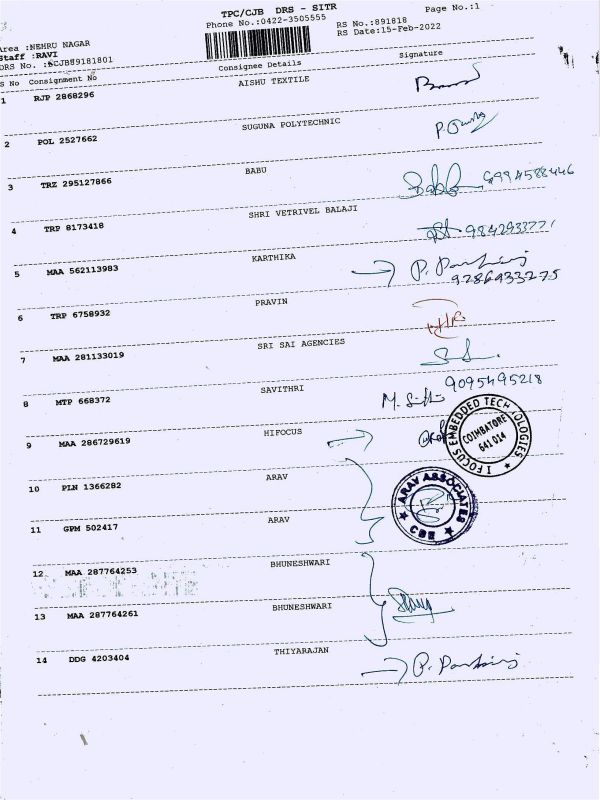 TPC/CJB DRS - SITR
Page No.:1
Phone No.:0422-3505555
RS No.:891818
RS Date:15-Feb-2022
Area :NEHRU NAGAR
Staff :RAVI
DRS No. :SCJB89181801
S No Consignment No Consignee Details Signature
1 RJP 2868296 AISHU TEXTILE
2 POL 2527662 SUGUNA POLYTECHNIC
3 TRZ 295127866 BABU
9994588446
4 TRP 8173418 SHRI VETRIVEL BALAJI
5 MAA 562113983 KARTHIKA
9286933275
6 TRP 6758932 PRAVIN
7 MAA 281133019 SRI SAI AGENCIES
8 MTP 668372 SAVITHRI
9095495218
9 MAA 286729619 HIFOCUS
I FOCUS EMBEDDED TECHNOLOGIES
COIMBATORE
641 014
10 PLN 1366282 ARAV
ARAV ASSOCIATES
CBE
11 GPM 502417 ARAV
12 MAA 287764253 BHUNESHWARI
13 MAA 287764261 BHUNESHWARI
14 DDG 4203404 THIYARAJAN